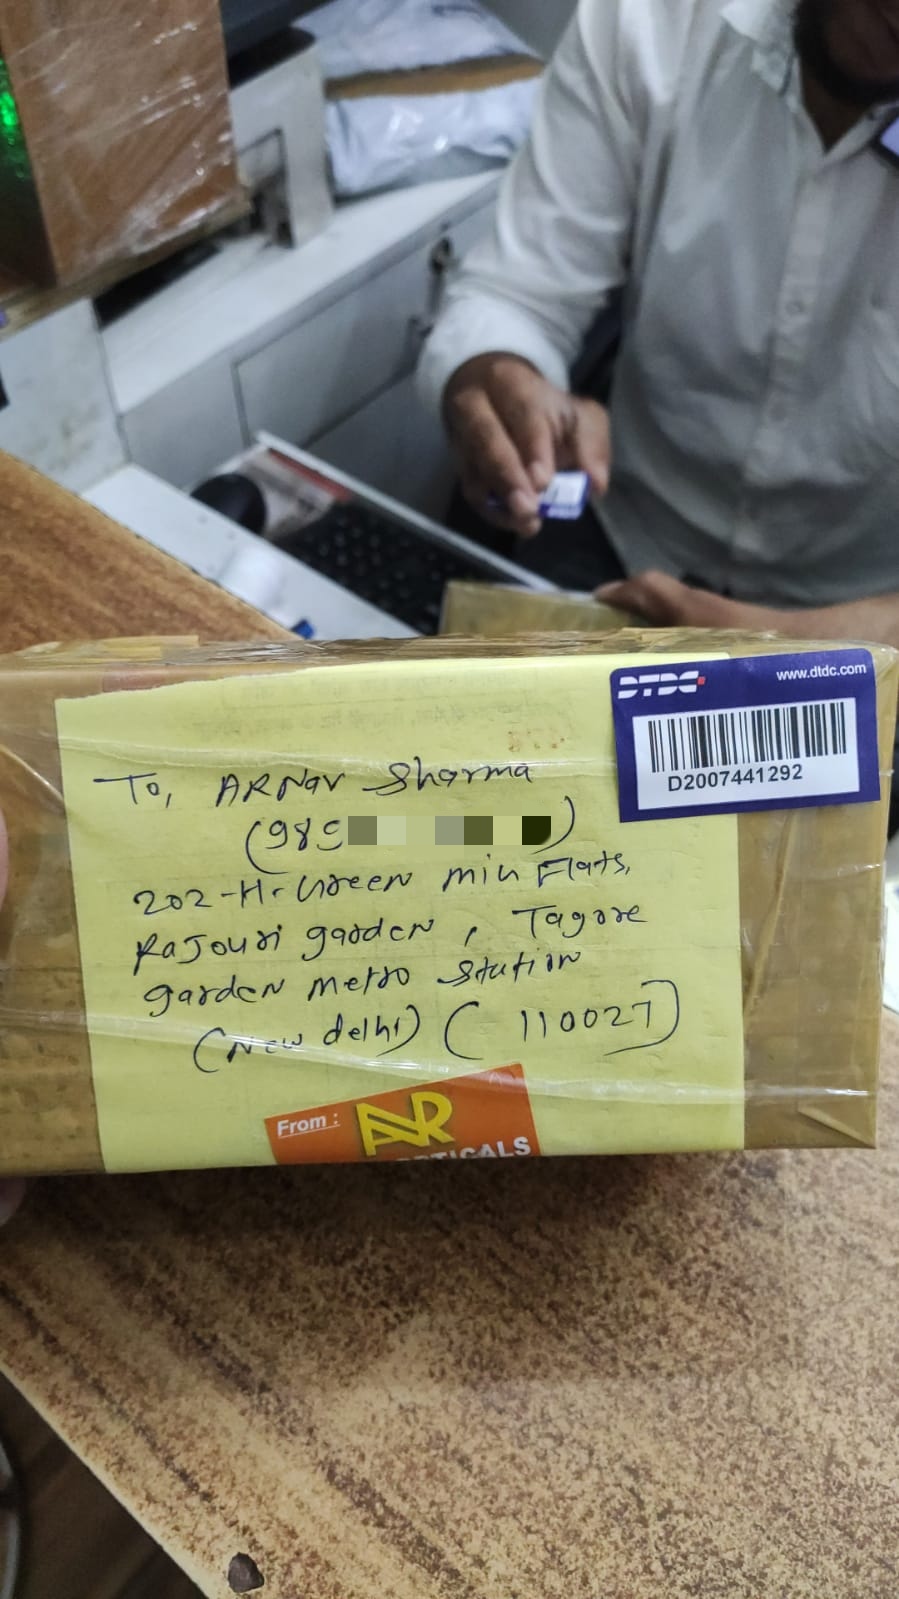 DTDC www.dtdc.com
D2007441292
To, ARNav Sharma
(989
202-H- Green mig Flats,
RaJouri garden, Tagore
garden metro Station
(New delhi) (110027)
From : AR
OPTICALS